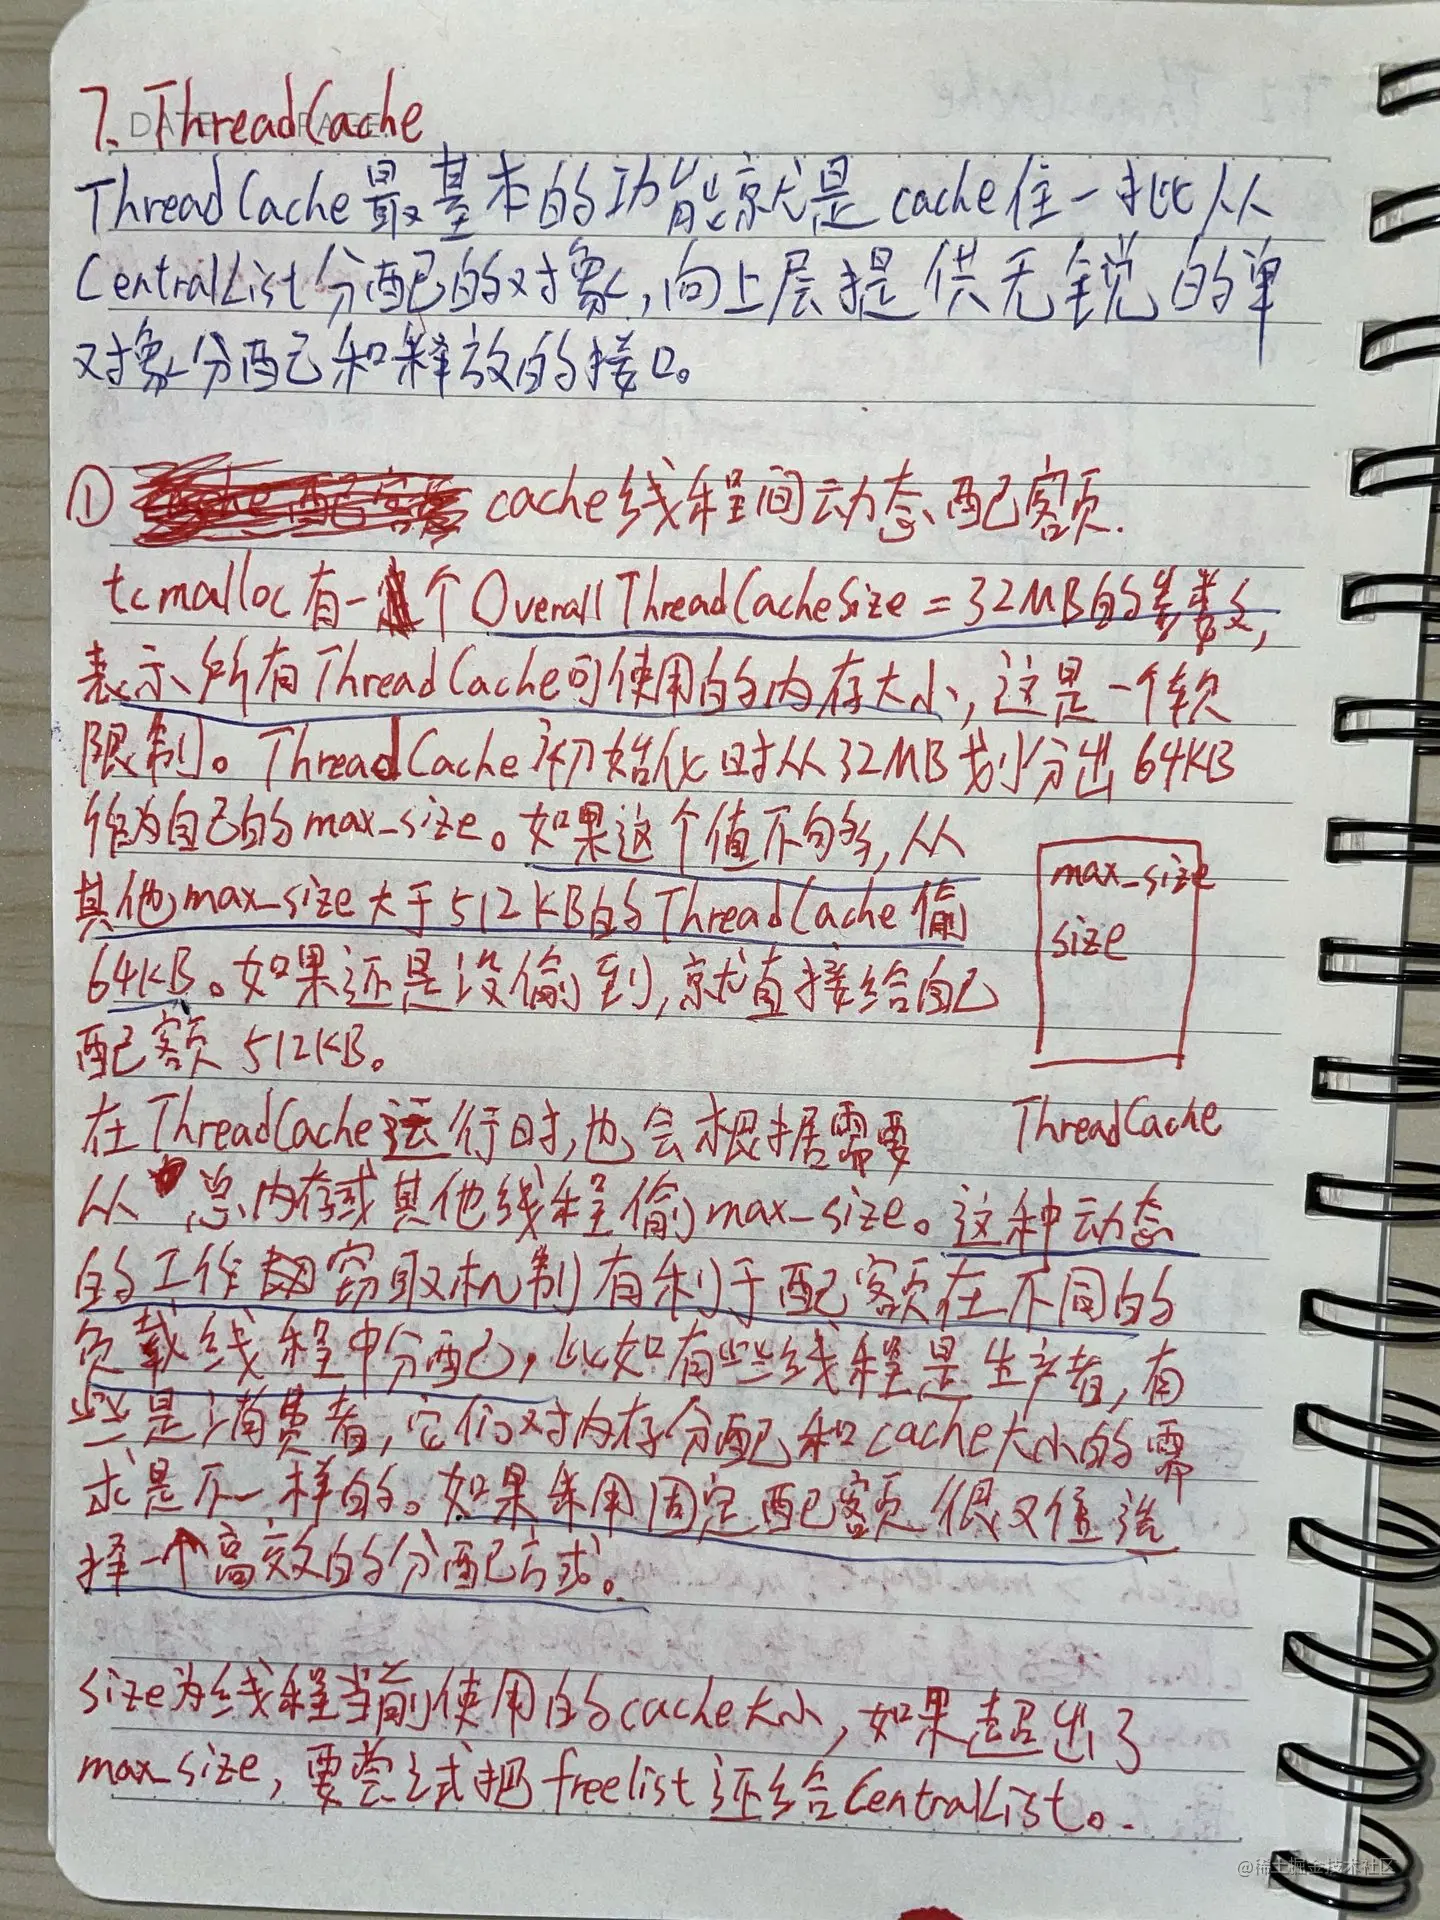 7. ThreadCache
ThreadCache最基本的功能就是cache住一批从
CentralList分配的对象,向上层提供无锐的单
对象分配和释放的接口。
① cache线程间动态配额.
tcmalloc有一个OverallThreadCacheSize = 32MB的参数,
表示所有ThreadCache可使用的内存大小,这是一个软
限制。ThreadCache初始化时从32MB划分出64KB
作为自己的max_size。如果这个值不够,从
其他max_size大于512KB的ThreadCache偷
64KB。如果还是没偷到,就直接给自己
配额512KB。
max_size
size
ThreadCache
在ThreadCache运行时,也会根据需要
从总内存或其他线程偷max_size。这种动态
的工作窃取机制有利于配额在不同的
负载线程中分配,比如有些线程是生产者,有
些是消费者,它们对内存分配和cache大小的需
求是不一样的。如果采用固定配额很又值选
择一个高效的分配方式。
size为线程当前使用的cache大小,如果超出了
max_size,要尝试把freelist还给CentralList。
@稀土掘金技术社区